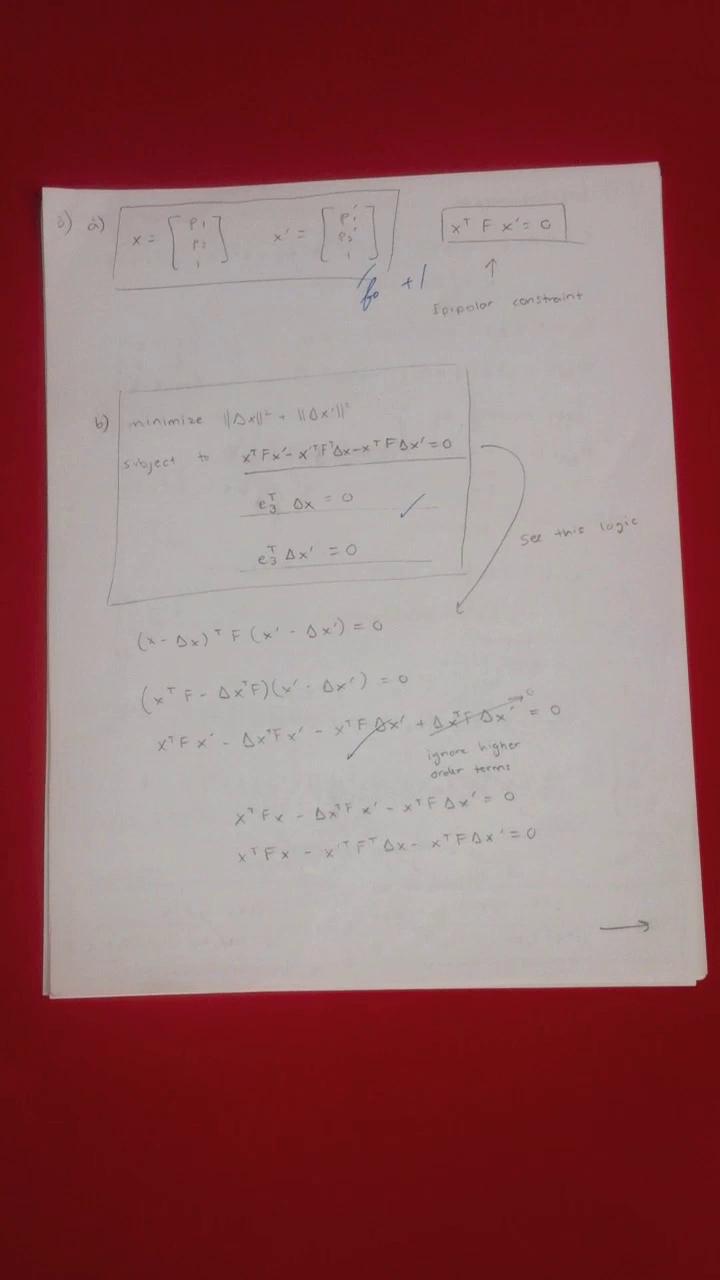 3) a) x = [p₁ p₂ 1] x' = [p₁' p₂' 1] xᵀ F x' = 0
f₀ +1
Epipolar constraint
b) minimize ||Δx||² + ||Δx'||²
subject to xᵀFx' - x'ᵀFᵀΔx - xᵀFΔx' = 0
e₃ᵀ Δx = 0 ✓
e₃ᵀ Δx' = 0
see this logic
(x - Δx)ᵀ F (x' - Δx') = 0
(xᵀF - ΔxᵀF)(x' - Δx') = 0
xᵀFx' - ΔxᵀFx' - xᵀFΔx' + ΔxᵀFΔx' = 0
0
ignore higher
order terms
xᵀFx - ΔxᵀFx' - xᵀFΔx' = 0
xᵀFx - x'ᵀFᵀΔx - xᵀFΔx' = 0